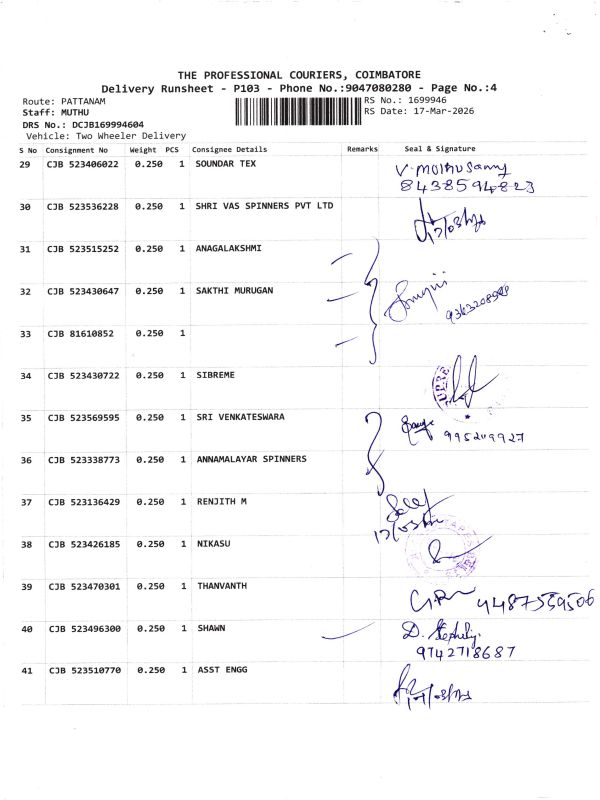 THE PROFESSIONAL COURIERS, COIMBATORE
Delivery Runsheet - P103 - Phone No.:9047080280 - Page No.:4
Route: PATTANAM
Staff: MUTHU
DRS No.: DCJB169994604
Vehicle: Two Wheeler Delivery
RS No.: 1699946
RS Date: 17-Mar-2026
S No Consignment No Weight PCS Consignee Details Remarks Seal & Signature
29 CJB 523406022 0.250 1 SOUNDAR TEX V. Muthusamy
8438594823
30 CJB 523536228 0.250 1 SHRI VAS SPINNERS PVT LTD
31 CJB 523515252 0.250 1 ANAGALAKSHMI
32 CJB 523430647 0.250 1 SAKTHI MURUGAN
33 CJB 81610852 0.250 1
34 CJB 523430722 0.250 1 SIBREME
35 CJB 523569595 0.250 1 SRI VENKATESWARA
995209927
36 CJB 523338773 0.250 1 ANNAMALAYAR SPINNERS
37 CJB 523136429 0.250 1 RENJITH M
38 CJB 523426185 0.250 1 NIKASU
39 CJB 523470301 0.250 1 THANVANTH
40 CJB 523496300 0.250 1 SHAWN
9742718687
41 CJB 523510770 0.250 1 ASST ENGG